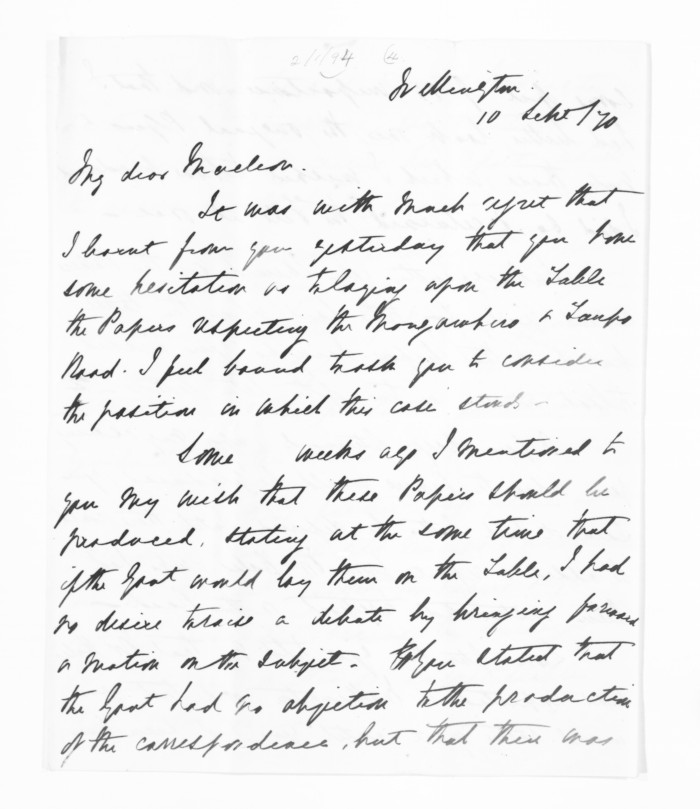 Wellington.
10 Sept/70
My dear Maclean.
It was with much regret that
I learnt from you yesterday that you have
some hesitation as to laying upon the Table
the Papers respecting the to Taupo
Road. I feel bound to ask you to consider
the position in which this case stands -
Some weeks ago I mentioned to
you my wish that these Papers should be
produced, stating at the same time that
if the Govt would lay them on the Table, I had
no desire to raise a debate by bringing forward
a motion on the subject. You stated that
the Govt had no objection to the production
of the correspondence, but that there was